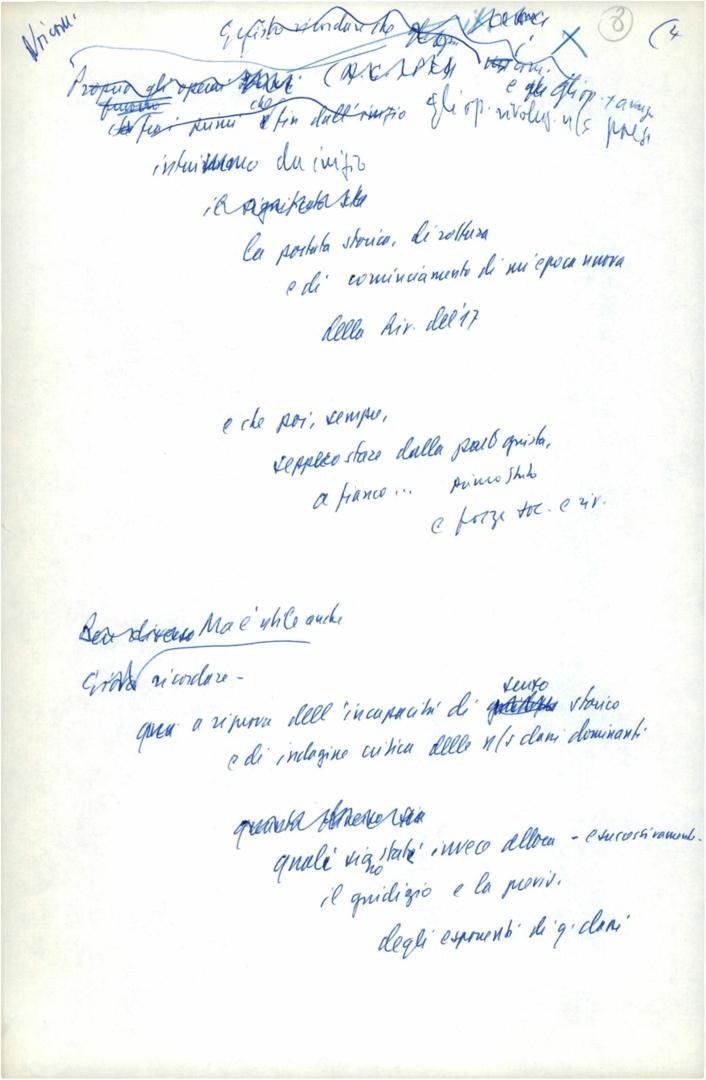 8
(4
È giusto ricordare che
Proprio gli operai
furono e gli op. avang
tra i primi che fin dall'inizio gli op. rivoluz. n/s paesi
intuirono da inizio
il significato
la portata storica, di rottura
e di cominciamento di un'epoca nuova
della Riv. del '17
e che poi, sempre,
seppero stare dalla parte giusta,
a fianco... primo Stato
e forze soc. e riv.
Ben diverso Ma è utile anche
Giova ricordare -
qui a riprova dell'incapacità di senso storico
e di indagine critica delle n/s classi dominanti
quali siano stati invece allora - e successivamente -
il giudizio e la previs.
degli esponenti di q. classi